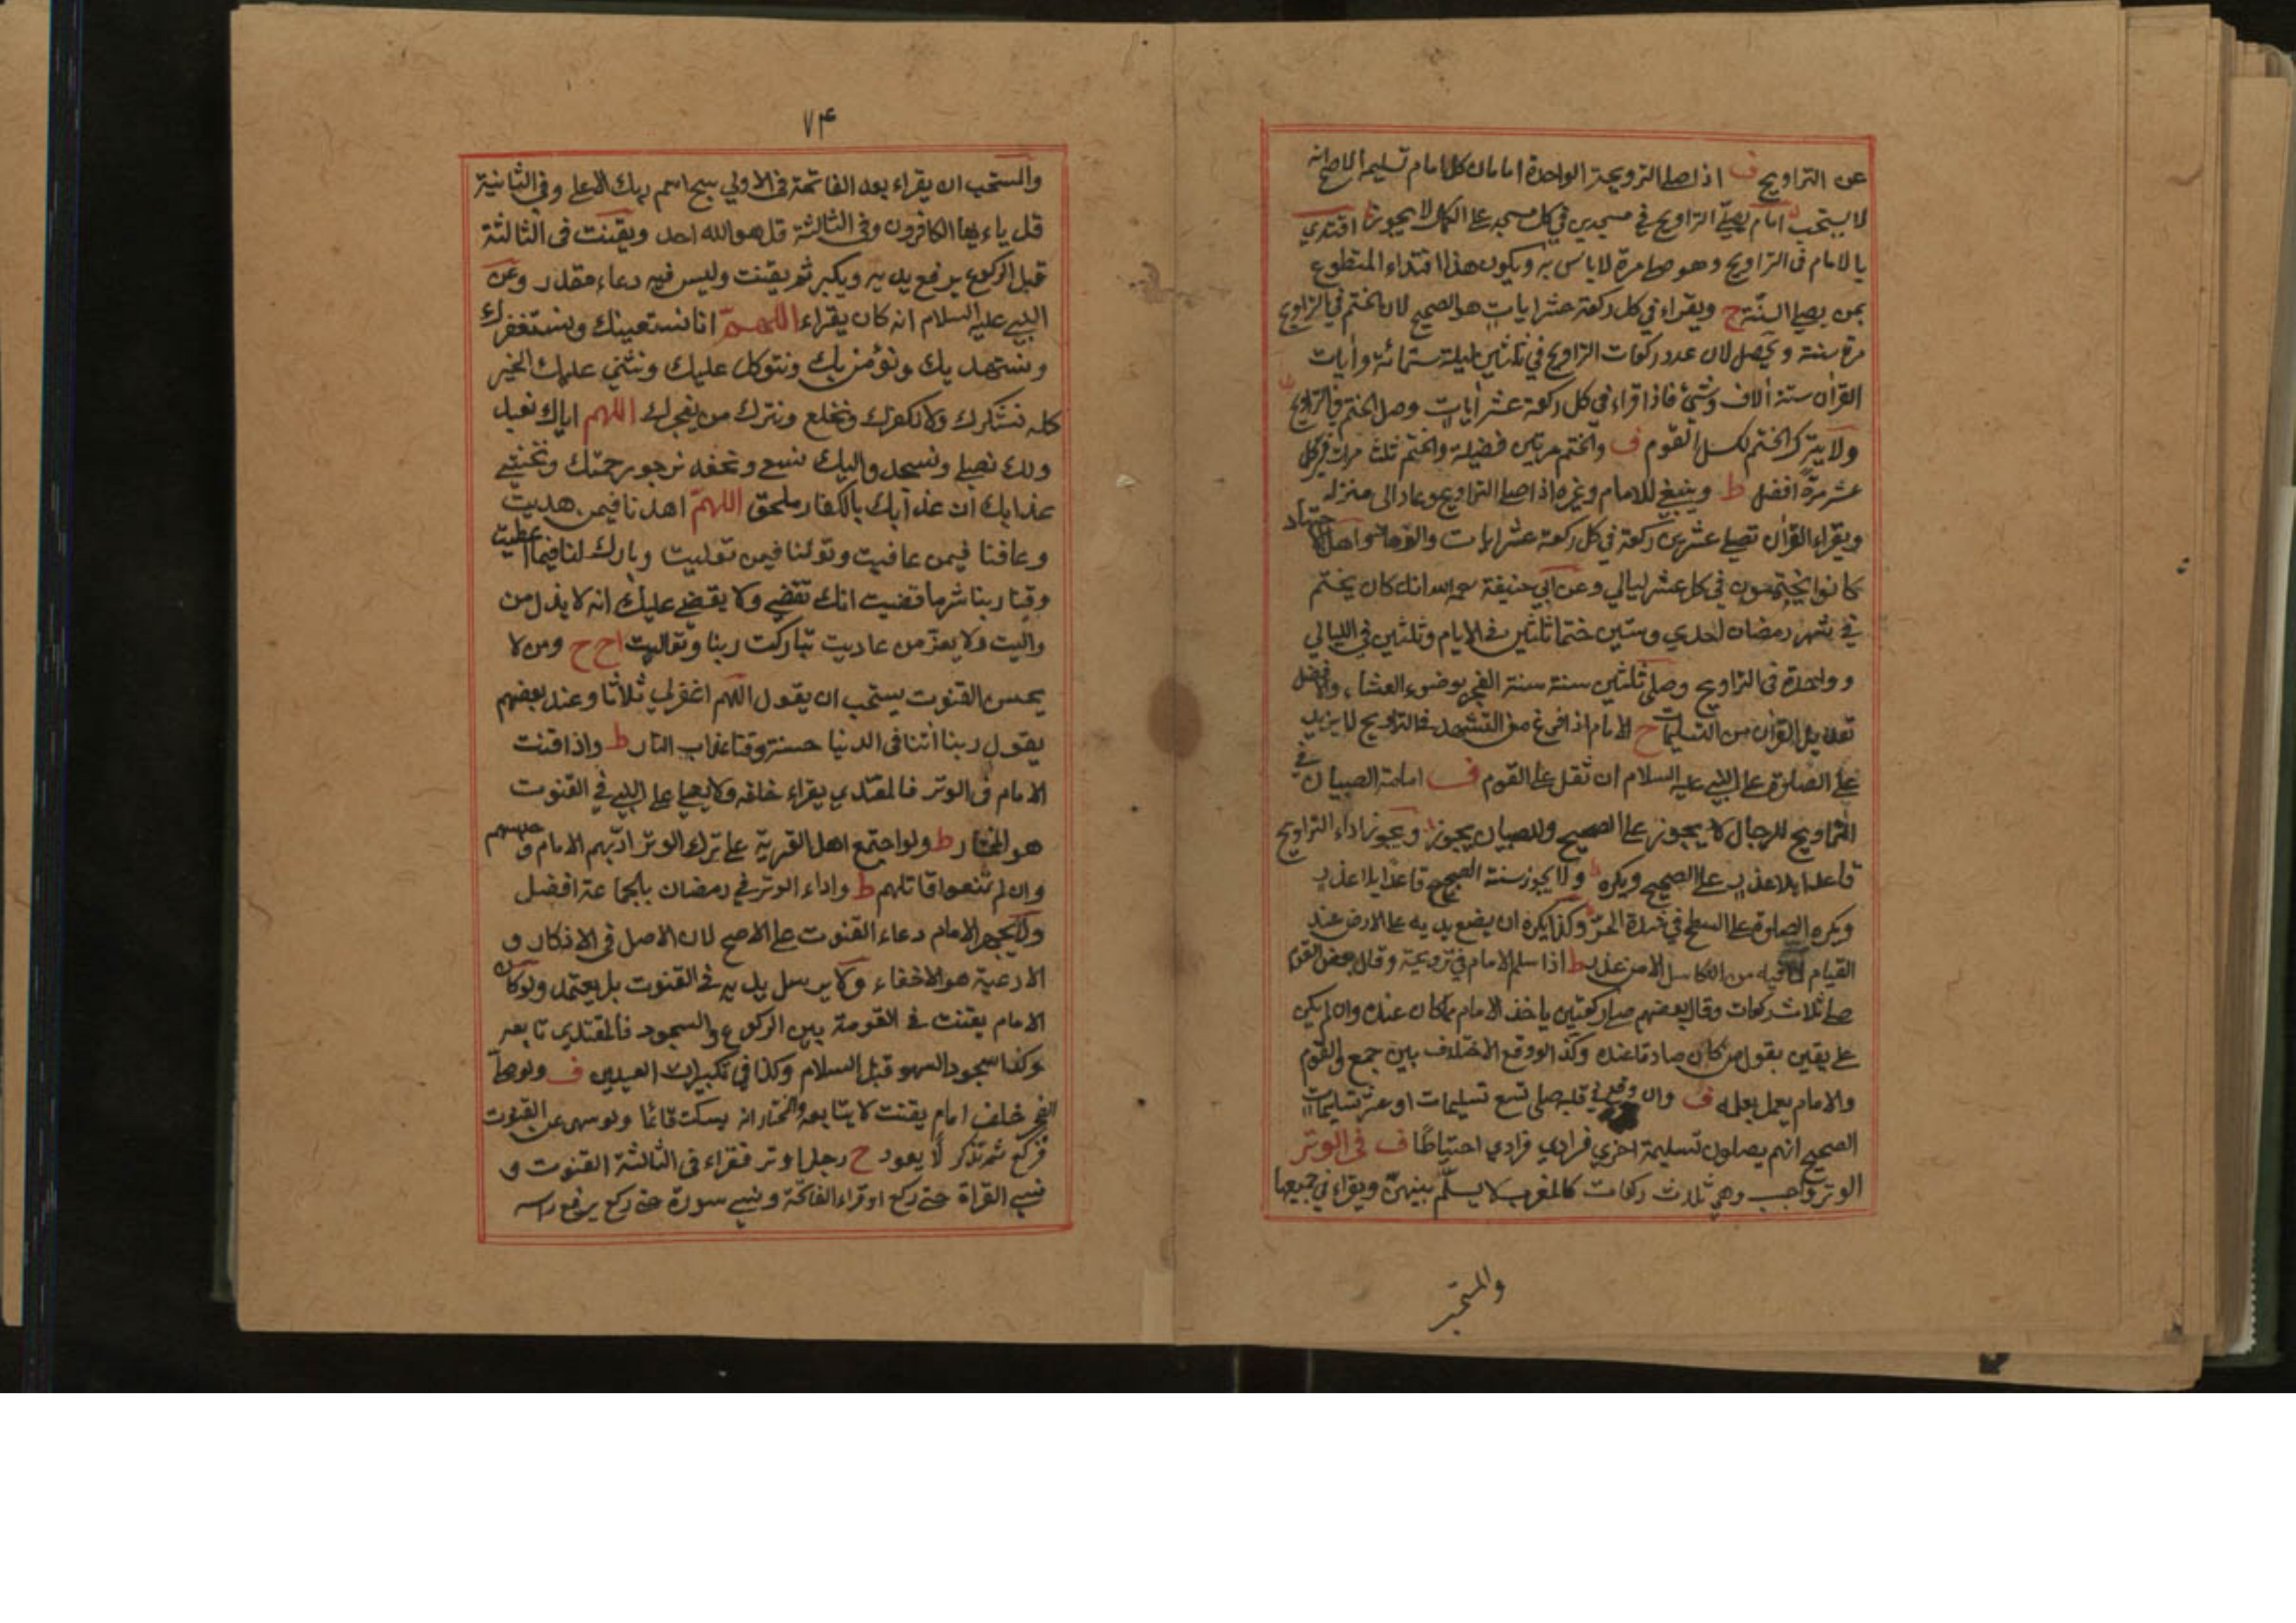 عن التراويح ف اذا صلى الترويحة الواحدة امامان كل امام تسليمة الاصح انه
لا يستحب امام يصلي التراويح في مسجدين في كل مسجد على الكمال لا يجوز اقتدي
بالامام في التراويح وهو صلى مرة لا باس به ويكون هذا اقتداء المتطوع
بمن يصلي السنة ج ويقراء في كل ركعة عشر ايات هو الصحيح لان الختم في التراويح
مرة سنة ويحصل لان عدد ركعات التراويح في ثلثين ليلة ستمائة وايات
القران ستة الاف وشئ فاذا قراء في كل ركعة عشر ايات وصل الختم في التراويح
ولا يترك الختم لكسل القوم ف والختم مرتين فضيلة والختم ثلث مرات في كل
عشر مرة افضل ط وينبغي للامام وغيره اذا صلى التراويح وعاد الى منزله
ويقراء القران تصلي عشرين ركعة في كل ركعة عشر ايات واهل الاجتهاد
كانوا يختمون في كل عشر ليالي وعن ابي حنيفة رحمه الله انه كان يختم
في شهر رمضان احدي وستين ختما ثلثين في الايام وثلثين في الليالي
وواحدة في التراويح وصلى ثلثين سنة سنة الفجر بوضوء العشاء والافضل
تعديل القران بين التسليمات ح الامام اذا فرغ من التشهد في التراويح لا يزيد
على الصلوة على النبي عليه السلام ان ثقل على القوم ف امامة الصبيان في
التراويح للرجال لا يجوز على الصحيح وللصبيان يجوز ويجوز اداء التراويح
قاعدا بلا عذر على الصحيح ويكره ولا يجوز سنة الصبح قاعدا بلا عذر
ويكره الصلوة على السطح في شدة الحر وكذا يكره ان يضع يديه على الارض عند
القيام لما فيه من التكاسل الا من عذر ط اذا سلم الامام في ترويحة وقال بعض القوم
صلى ثلاث ركعات وقال بعضهم صلى ركعتين ياخذ الامام بما كان عنده وان لم يكن
على يقين بقول من كان صادقا عنده وكذا لو وقع الاختلاف بين جمع القوم
والامام يعمل بعلمه ف وان وقع في قلبه صلى تسع تسليمات او عشر تسليمات
الصحيح انهم يصلون تسليمة اخري فرادي فرادي احتياطا ف في الوتر
الوتر واجب وهي ثلاث ركعات كالمغرب لا يسلم بينهن ويقراء في جميعها
والمستحب
٧٤
والمستحب ان يقراء بعد الفاتحة في الاولي سبح اسم ربك الاعلى وفي الثانية
قل ياءيها الكافرون وفي الثالثة قل هو الله احد ويقنت في الثالثة
قبل الركوع يرفع يديه ويكبر ثم يقنت وليس فيه دعاء مقدر وعن
النبي عليه السلام انه كان يقراء اللهم انا نستعينك ونستغفرك
ونستهديك ونؤمن بك ونتوكل عليك ونثني عليك الخير
كله نشكرك ولا نكفرك ونخلع ونترك من يفجرك اللهم اياك نعبد
ولك نصلي ونسجد واليك نسعى ونحفد نرجو رحمتك ونخشى
عذابك ان عذابك بالكفار ملحق اللهم اهدنا فيمن هديت
وعافنا فيمن عافيت وتولنا فيمن توليت وبارك لنا فيما اعطيت
وقنا ربنا شر ما قضيت انك تقضي ولا يقضى عليك انه لا يذل من
واليت ولا يعز من عاديت تباركت ربنا وتعاليت اح ح ومن لا
يحسن القنوت يستحب ان يقول اللهم اغفرلي ثلاثا وعند بعضهم
يقول ربنا اتنا في الدنيا حسنة وقنا عذاب النار ط واذا قنت
الامام في الوتر فالمقتدي يقراء خلفه ولا يصلي على النبي في القنوت
هو المختار ط ولو اجتمع اهل القرية على ترك الوتر ادبهم الامام وحبسهم
وان لم يمتنعوا قاتلهم ط واداء الوتر في رمضان بالجماعة افضل
ولا يجهر الامام دعاء القنوت على الاصح لان الاصل في الاذكار و
الادعية هو الاخفاء ولا يرسل يديه في القنوت بل يعتمد ولو كان
الامام يقنت في القومة بين الركوع والسجود فالمقتدي تابعه
وكذا سجود السهو قبل السلام وكذا في تكبيرات العيدين ف ولو صلى
الفجر خلف امام يقنت لا يتابعه والمختار انه يسكت قائما ولو سهى عن القنوت
فركع ثم تذكر لا يعود ح رجل اوتر فقراء في الثالثة القنوت و
نسي القراة حتى ركع او قراء الفاتحة ونسي سورة حتى ركع يرفع راسه